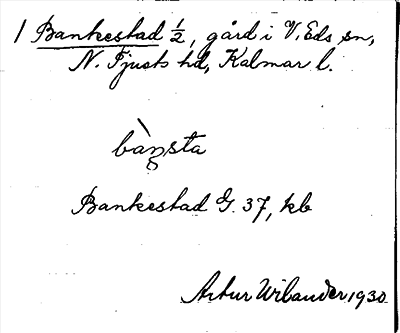 1 Bankestad 1/2, gård i V. Eds sn,
N. Tjusts hd, Kalmar l.
bàŋsta
Bankestad G. 37, kb
Artur Wilander 1930